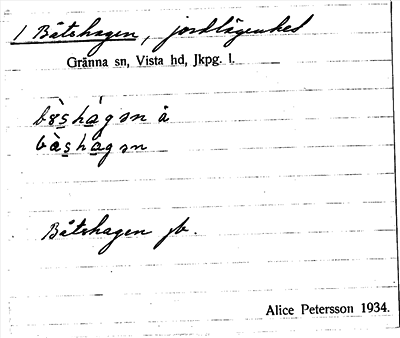 1 Båtshagen, jordlägenhet
Gränna sn, Vista hd, Jkpg. l.
Båtshagen jb.
Alice Petersson 1934.